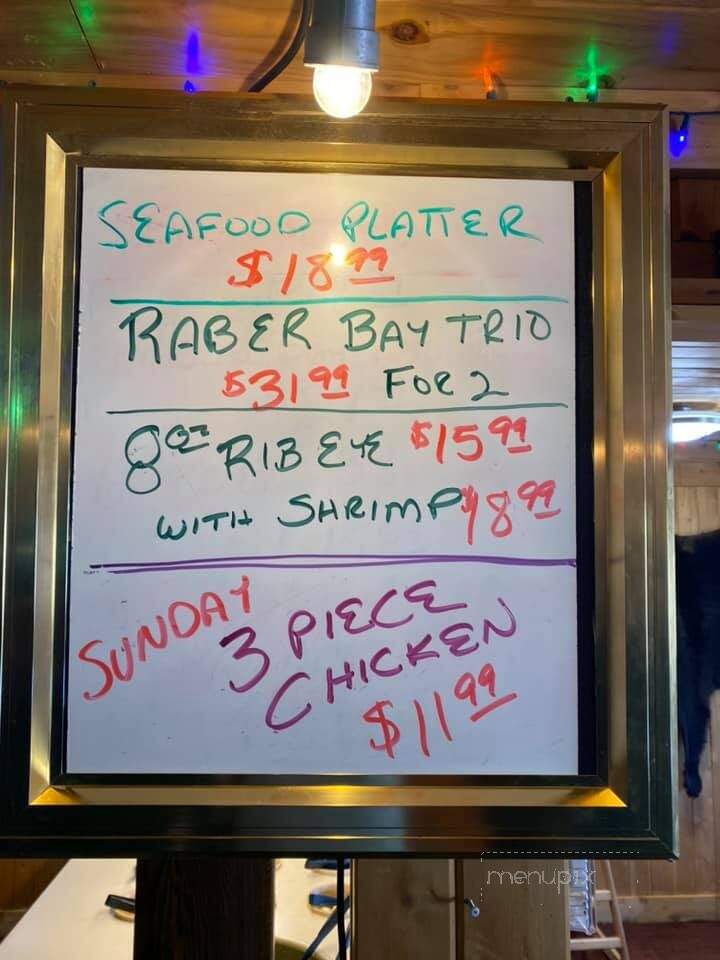 SEAFOOD PLATTER
$18.99
RABER BAY TRIO
$31.99 FOR 2
8oz RIB EYE $15.99
WITH SHRIMP $18.99
SUNDAY 3 PIECE
CHICKEN
$11.99
menupix